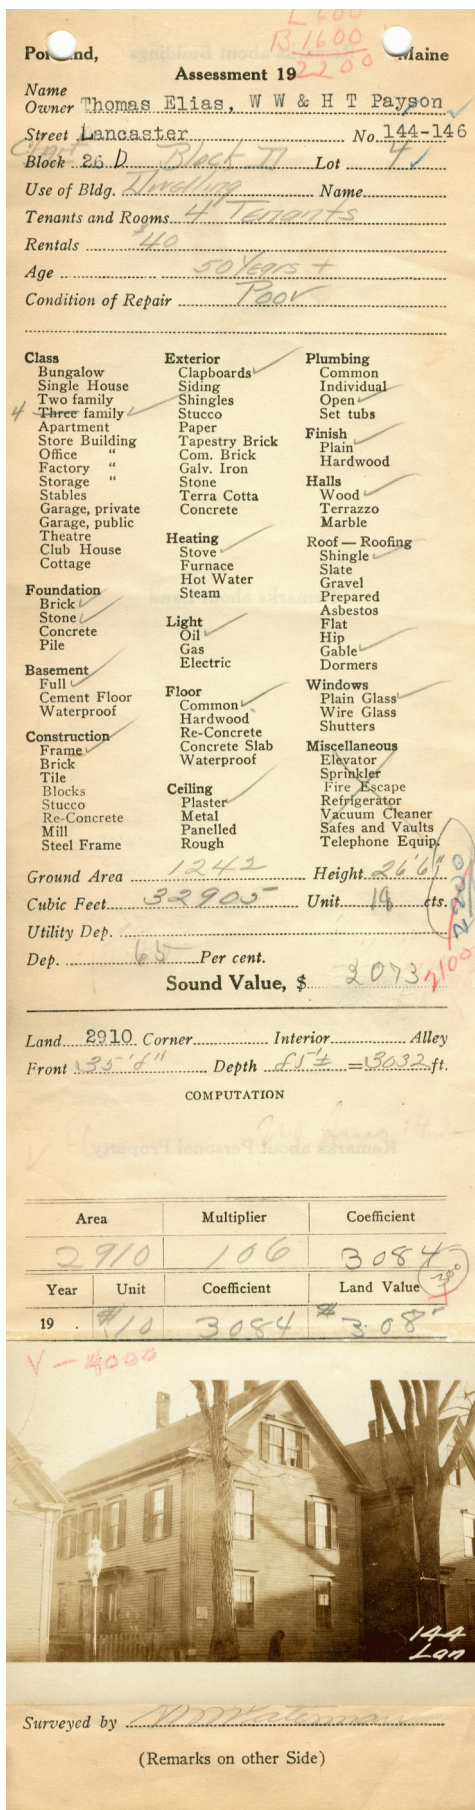 L 600
B 1600
2200
Portland, Maine
Assessment 19
Name
Owner Thomas Elias, W W & H T Payson
Street Lancaster No. 144-146
Chart
Block 26 D Block D Lot 4
Use of Bldg. Dwelling Name
Tenants and Rooms 4 Tenants
Rentals $40
Age 50 Years +
Condition of Repair Poor
Class
Bungalow
Single House
Two family
4 Three family
Apartment
Store Building
Office "
Factory "
Storage "
Stables
Garage, private
Garage, public
Theatre
Club House
Cottage
Foundation
Brick
Stone
Concrete
Pile
Basement
Full
Cement Floor
Waterproof
Construction
Frame
Brick
Tile
Blocks
Stucco
Re-Concrete
Mill
Steel Frame
Exterior
Clapboards
Siding
Shingles
Stucco
Paper
Tapestry Brick
Com. Brick
Galv. Iron
Stone
Terra Cotta
Concrete
Heating
Stove
Furnace
Hot Water
Steam
Light
Oil
Gas
Electric
Floor
Common
Hardwood
Re-Concrete
Concrete Slab
Waterproof
Ceiling
Plaster
Metal
Panelled
Rough
Plumbing
Common
Individual
Open
Set tubs
Finish
Plain
Hardwood
Halls
Wood
Terrazzo
Marble
Roof — Roofing
Shingle
Slate
Gravel
Prepared
Asbestos
Flat
Hip
Gable
Dormers
Windows
Plain Glass
Wire Glass
Shutters
Miscellaneous
Elevator
Sprinkler
Fire Escape
Refrigerator
Vacuum Cleaner
Safes and Vaults
Telephone Equip.
Ground Area 1242 Height 26'6"
Cubic Feet 32905 Unit 18 cts.
2200
Utility Dep.
Dep. 65 Per cent.
Sound Value, $ 2073 2100
Land 2910 Corner Interior Alley
Front 35'8" Depth 85'± = 3032 ft.
COMPUTATION
Area Multiplier Coefficient
2910 106 3084
300
Year Unit Coefficient Land Value
19 . $10 3084 $308
V - 4000
144
Lan
Surveyed by Waterman
(Remarks on other Side)